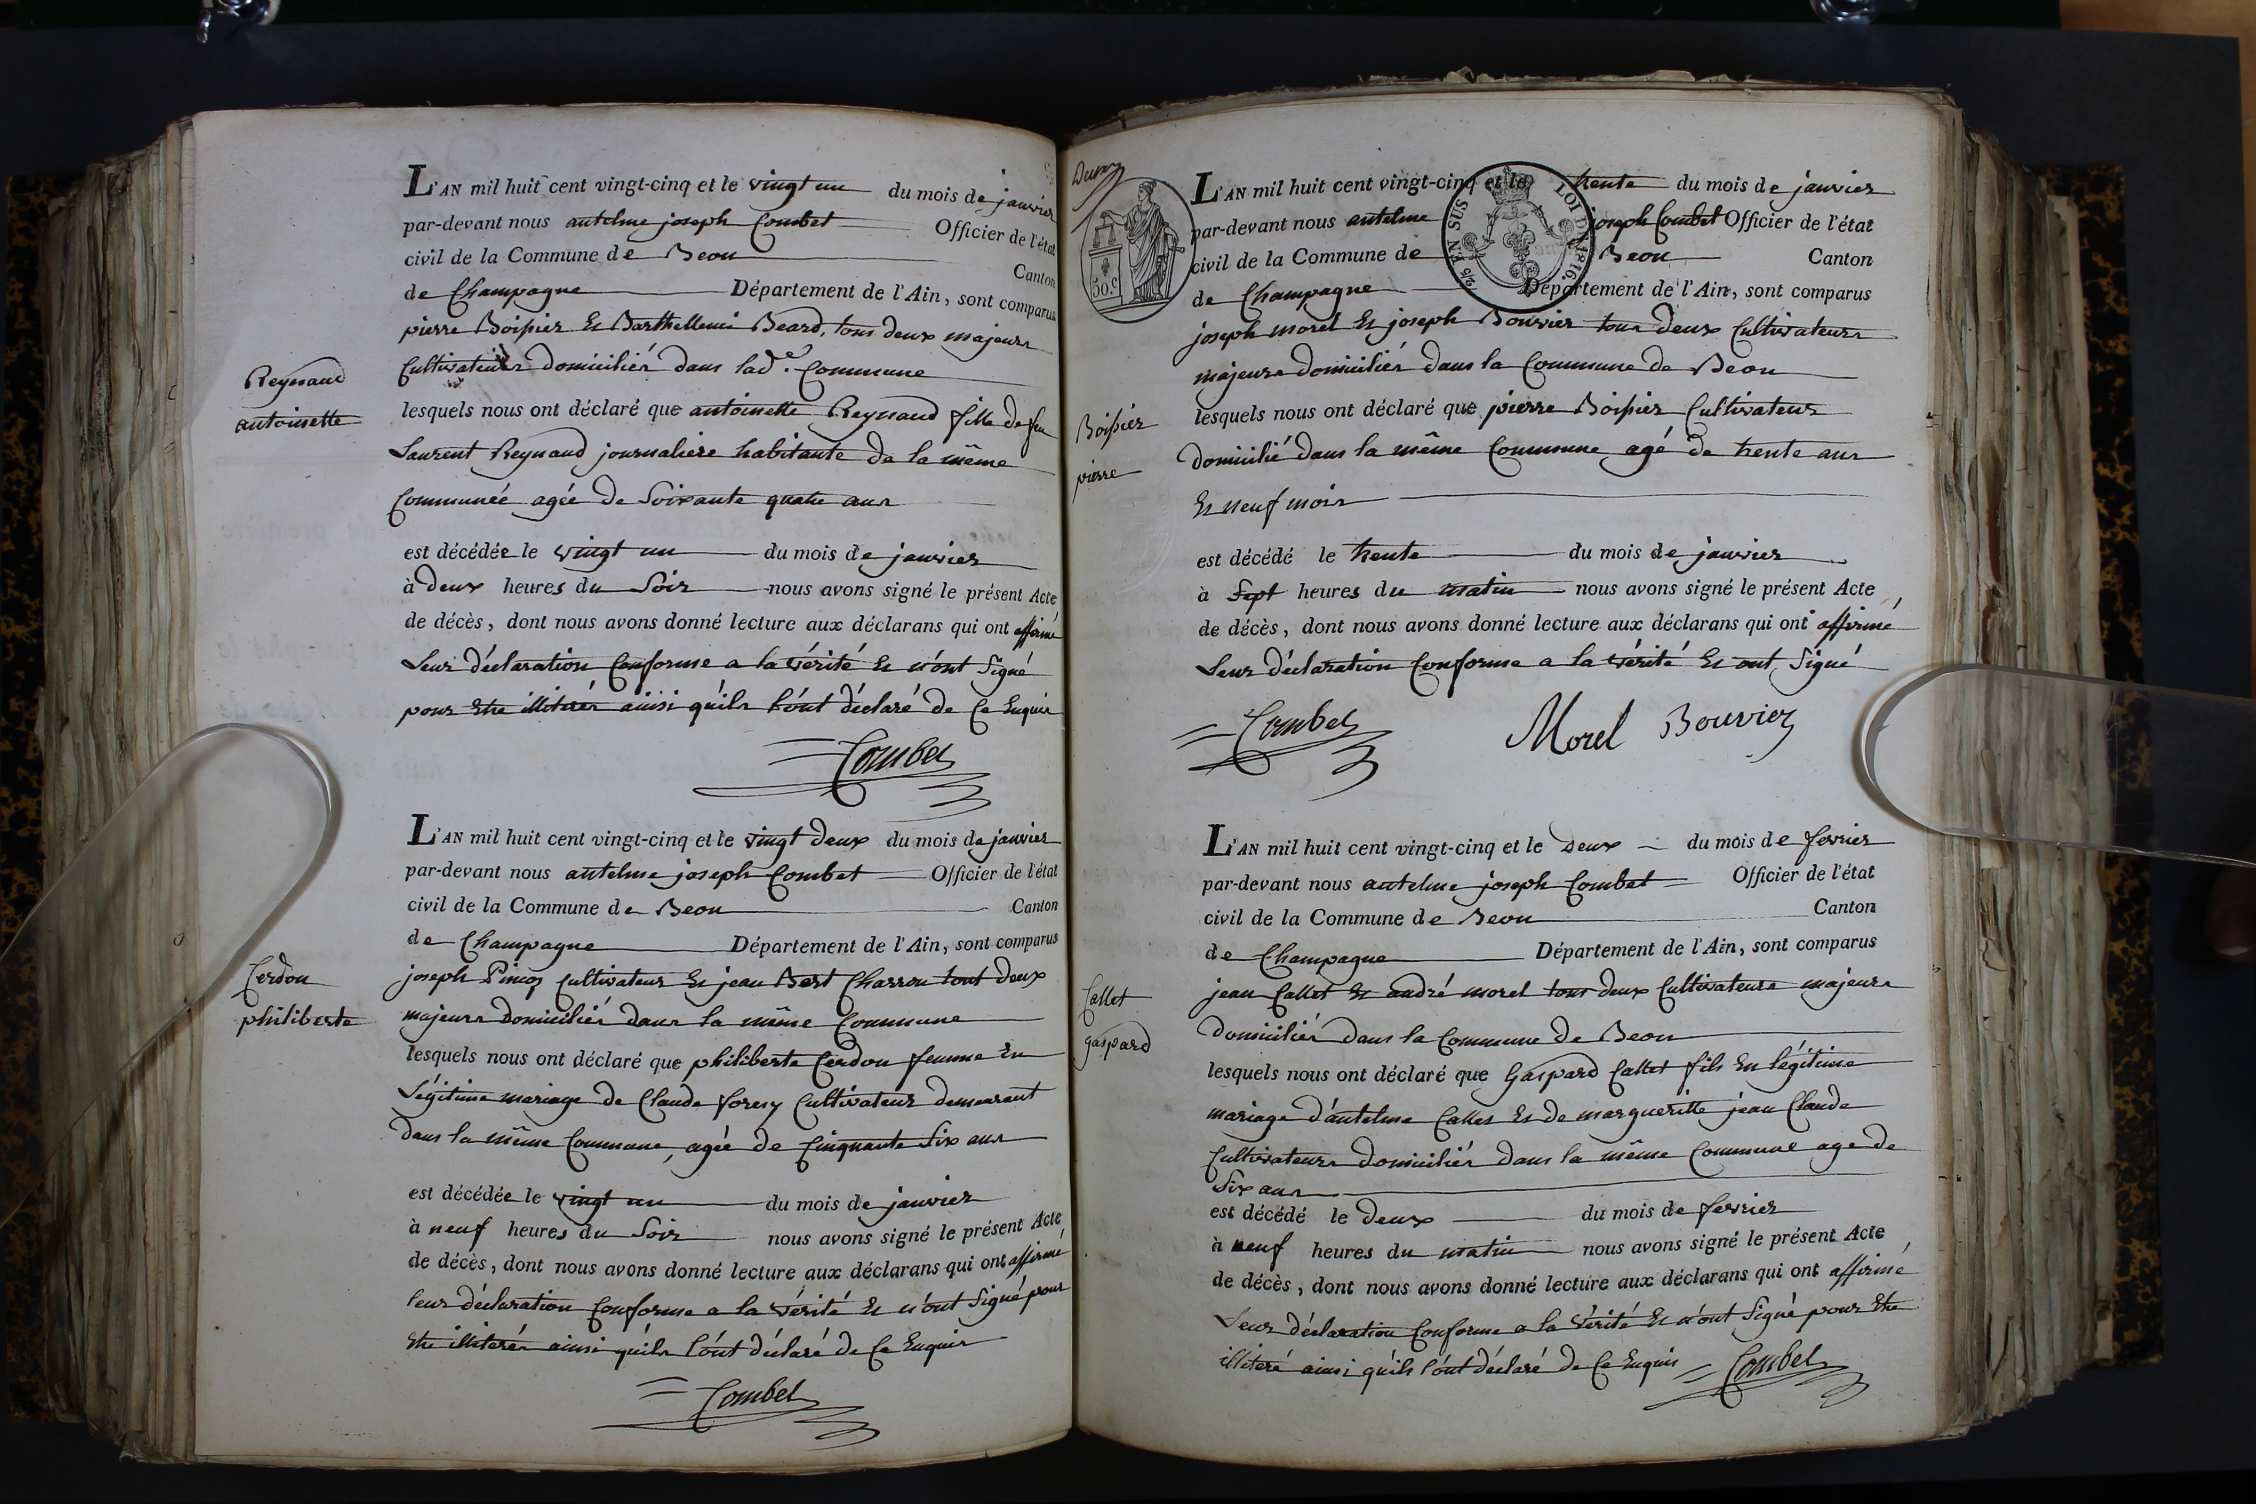 L'AN mil huit cent vingt-cinq et le vingt un du mois de janvier
par-devant nous antelme joseph Combet Officier de l'état
civil de la Commune de Beon Canton
de Champagne Département de l'Ain, sont comparus
pierre Boissier et Barthellemi Beard, tous deux majeurs
Cultivateurs domiciliés dans lad.e Commune
Reynaud
antoinette
lesquels nous ont déclaré que antoinette Reynaud fille de feu
Laurent Reynaud journaliere habitante de la même
Communée agée de Soixante quatre ans
est décédée le vingt un du mois de janvier
à deux heures du Soir nous avons signé le présent Acte
de décès, dont nous avons donné lecture aux déclarans qui ont affirmé
Leur déclaration Conforme a la vérité et n'ont Signé
pour etre illiterés ainsi qu'ils l'ont déclaré de ce Enquis
Combet
L'AN mil huit cent vingt-cinq et le vingt deux du mois de janvier
par-devant nous antelme joseph Combet Officier de l'état
civil de la Commune de Beon Canton
de Champagne Département de l'Ain, sont comparus
Cerdon
philiberte
joseph Cultivateur et jean Bert Charron tout deux
majeurs domiciliés dans la même Commune
lesquels nous ont déclaré que philiberte Cerdon femme En
Légitime mariage de Claude Cultivateur demeurant
dans la même Commune, agée de Cinquante Six ans
est décédée le vingt un du mois de janvier
à neuf heures du Soir nous avons signé le présent Acte
de décès, dont nous avons donné lecture aux déclarans qui ont affirmé
leur déclaration Conforme a la vérité et n'ont Signé pour
etre illiterés ainsi qu'ils l'ont déclaré de ce Enquis
Combet
50.c
EN SUS
LOI DE 1816.
L'AN mil huit cent vingt-cinq et le trente du mois de janvier
par-devant nous antelme joseph Combet Officier de l'état
civil de la Commune de Beon Canton
de Champagne Département de l'Ain, sont comparus
joseph morel et joseph Bouvier tous deux Cultivateurs
majeurs domiciliés dans la Commune de Beon
Boissier
pierre
lesquels nous ont déclaré que pierre Boissier Cultivateur
domicilié dans la même Commune agé de trente ans
et neuf mois
est décédé le trente du mois de janvier
à Sept heures du matin nous avons signé le présent Acte
de décès, dont nous avons donné lecture aux déclarans qui ont affirmé
Leur déclaration Conforme a la vérité et ont Signé
Combet Morel Bouvier
L'AN mil huit cent vingt-cinq et le Deux du mois de fevrier
par-devant nous antelme joseph Combet Officier de l'état
civil de la Commune de Beon Canton
de Champagne Département de l'Ain, sont comparus
Callet
gaspard
jean Callet et andré morel tous deux Cultivateurs majeurs
domiciliés dans la Commune de Beon
lesquels nous ont déclaré que Gaspard Callet fils En légitime
mariage d'antelme Callet et de margueritte jean Claude
Cultivateurs domiciliés dans la même Commune age de
Six ans
est décédé le deux du mois de fevrier
à neuf heures du matin nous avons signé le présent Acte
de décès, dont nous avons donné lecture aux déclarans qui ont affirmé
Leur déclaration Conforme a la vérité et n'ont Signé pour etre
illiteré ainsi qu'ils l'ont déclaré de ce Enquis Combet